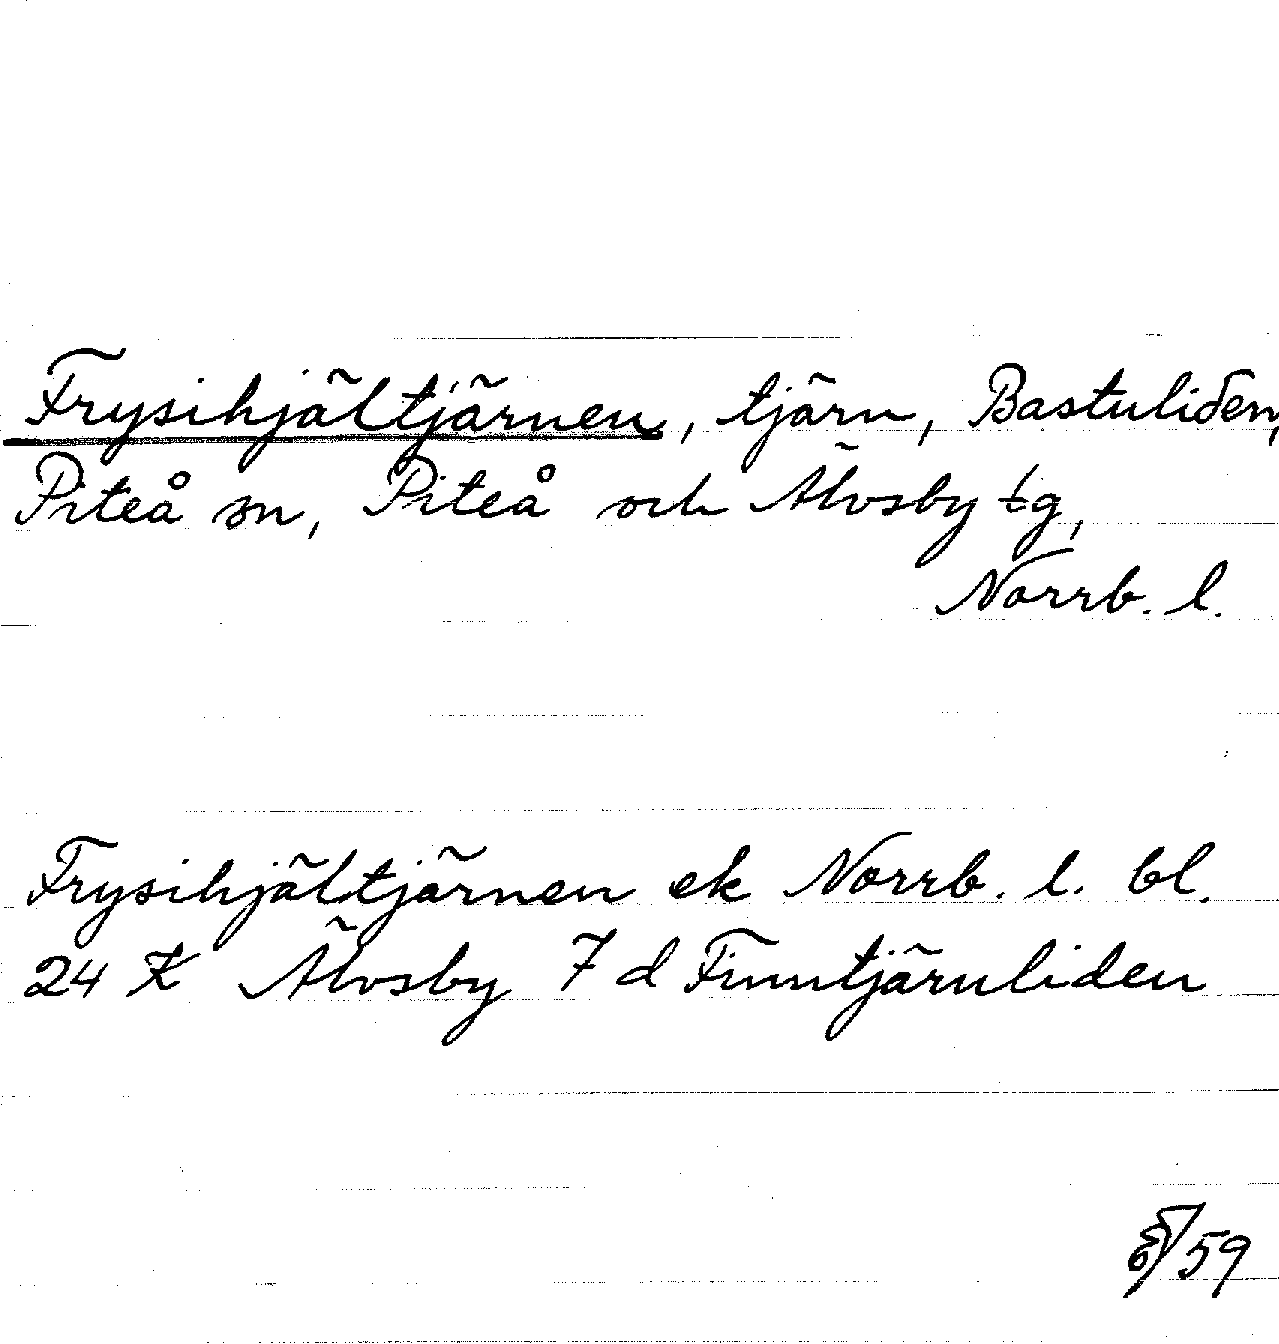 Frysihjältjärnen, tjärn, Bastuliden,
Piteå sn, Piteå och Älvsby tg,
Norrb. l.
Frysihjältjärnen ek Norrb. l. bl.
24 K Älvsby 7 d Finntjärnliden
/59